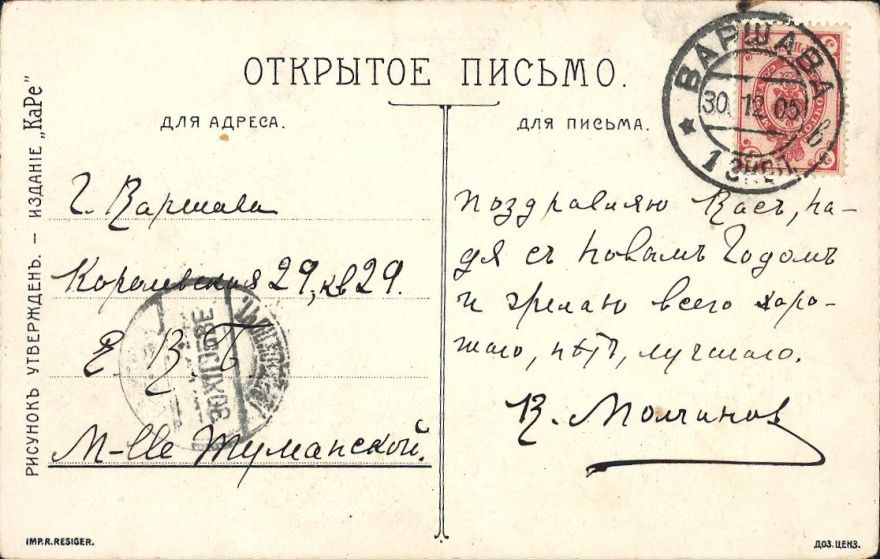 ОТКРЫТОЕ ПИСЬМО.
ДЛЯ АДРЕСА.
ДЛЯ ПИСЬМА.
ВАРШАВА
30.12.05
1 ЭКСП.
РИСУНОКЪ УТВЕРЖДЕН. — ИЗДАНІЕ „КаРе"
Г. Варшава
Королевская 29, кв 29.
Е. В. Б.
М-lle Туманской.
Поздравляю Васъ, На-
дя съ Новымъ Годомъ
и желаю всего хоро-
шаго, нѣтъ, лучшаго.
В. Молчанов
IMP. R. RESIGER.
ДОЗ. ЦЕНЗ.